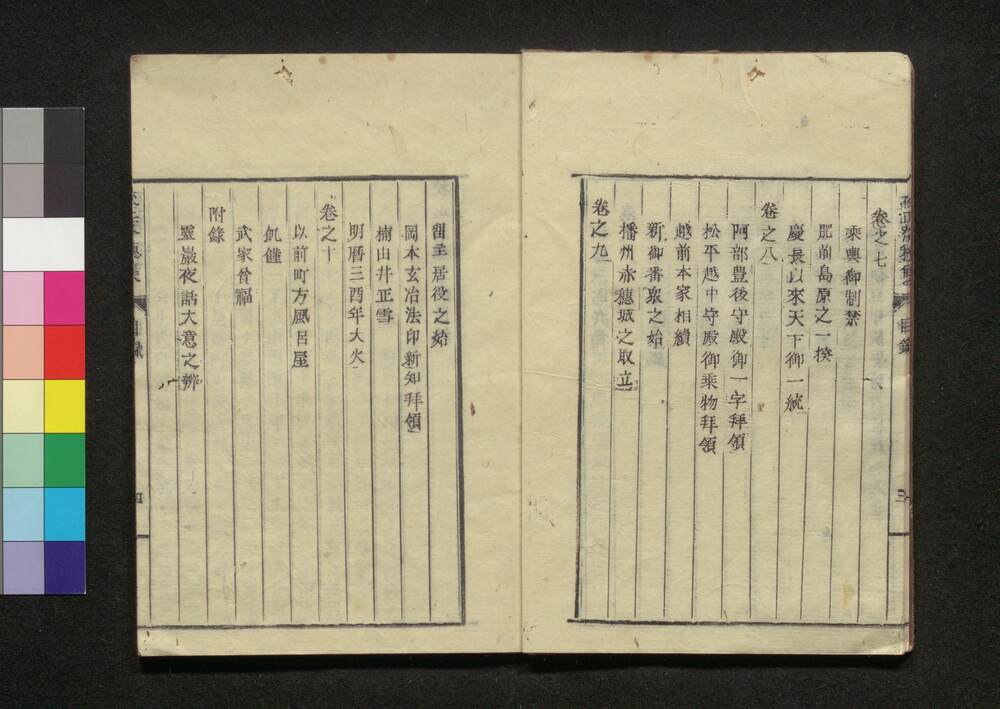 卷之七
乘輿御制禁
肥前島原之一揆
慶長以來天下御一統
卷之八
阿部豊後守殿御一字拜領
松平越中守殿御乘物拜領
越前本家相續
新御番衆之始
播州赤穗城之取立
卷之九
留主居役之始
岡本玄冶法印新知拜領
楠由井正雪
明曆三酉年大火
卷之十
以前町方風呂屋
飢饉
武家眥福
附錄
靈巖夜話大意之辨
目錄
三